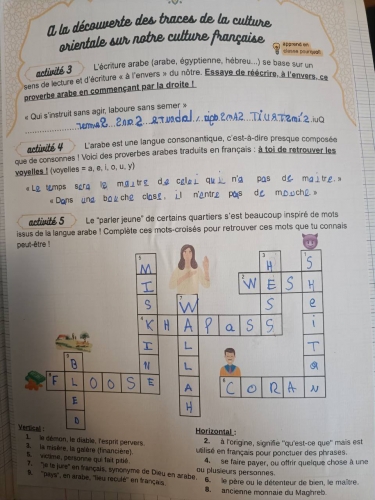 A la découverte des traces de la culture
orientale sur notre culture française
Apprend en
classe pourquoi!
activité 3 L'écriture arabe (arabe, égyptienne, hébreu...) se base sur un
sens de lecture et d'écriture « à l'envers » du nôtre. Essaye de réécrire, à l'envers, ce
proverbe arabe en commençant par la droite !
« Qui s'instruit sans agir, laboure sans semer »
iuQ
activité 4 L'arabe est une langue consonantique, c'est-à-dire presque composée
que de consonnes ! Voici des proverbes arabes traduits en français : à toi de retrouver les
voyelles ! (voyelles = a, e, i, o, u, y)
« Le temps sera le maitre de celui qui n'a pas de maitre. »
« Dans una bouche close, il n'entre pas de mouche. »
activité 5 Le "parler jeune" de certains quartiers s'est beaucoup inspiré de mots
issus de la langue arabe ! Complète ces mots-croisés pour retrouver ces mots que tu connais
peut-être !
WESH
KHAPASS
FLOOSE
CORAN
MISKINE
WALLAH
HESS
SHeiTaN
BLED
Vertical :
1. le démon, le diable, l'esprit pervers.
3. la misère, la galère (financière).
5. victime, personne qui fait pitié.
7. "je le jure" en français, synonyme de Dieu en arabe.
9. "pays", en arabe, "lieu reculé" en français.
Horizontal :
2. à l'origine, signifie "qu'est-ce que" mais est
utilisé en français pour ponctuer des phrases.
4. se faire payer, ou offrir quelque chose à une
ou plusieurs personnes.
6. le père ou le détenteur de bien, le maître.
8. ancienne monnaie du Maghreb.